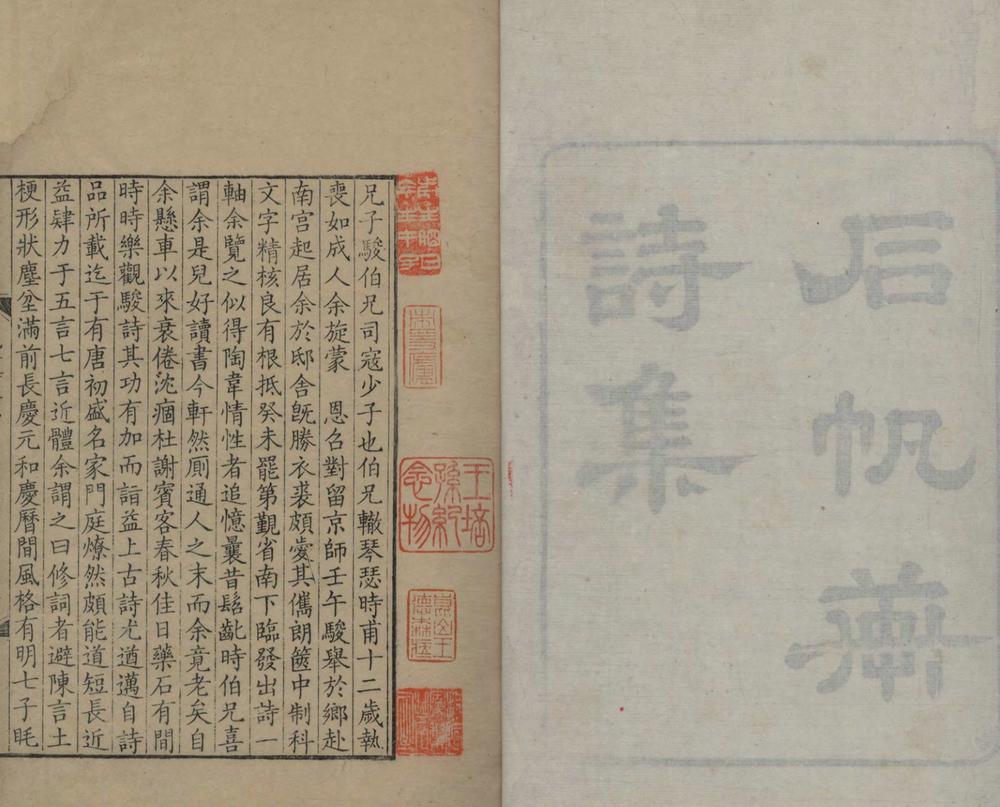 后帆齋
詩集
兄子駿伯兄司寇少子也伯兄轍琴瑟時甫十二歲執
喪如成人余旋蒙　恩召對留京師壬午駿舉於鄉赴
南宮起居余於邸舍旣勝衣裘頗愛其儁朗篋中制科
文字精核良有根抵癸未罷第覲省南下臨發出詩一
軸余覽之似得陶韋情性者追憶曩昔髫齔時伯兄喜
謂余是兒好讀書今軒然厠通人之末而余竟老矣自
余懸車以來衰倦沈痼杜謝賓客春秋佳日藥石有間
時時樂觀駿詩其功有加而詣益上古詩尤遒邁自詩
品所載迄于有唐初盛名家門庭燎然頗能道短長近
益肆力于五言七言近體余謂之曰修詞者避陳言土
梗形狀塵坌滿前長慶元和慶曆間風格有明七子眊
王培孫紀念物